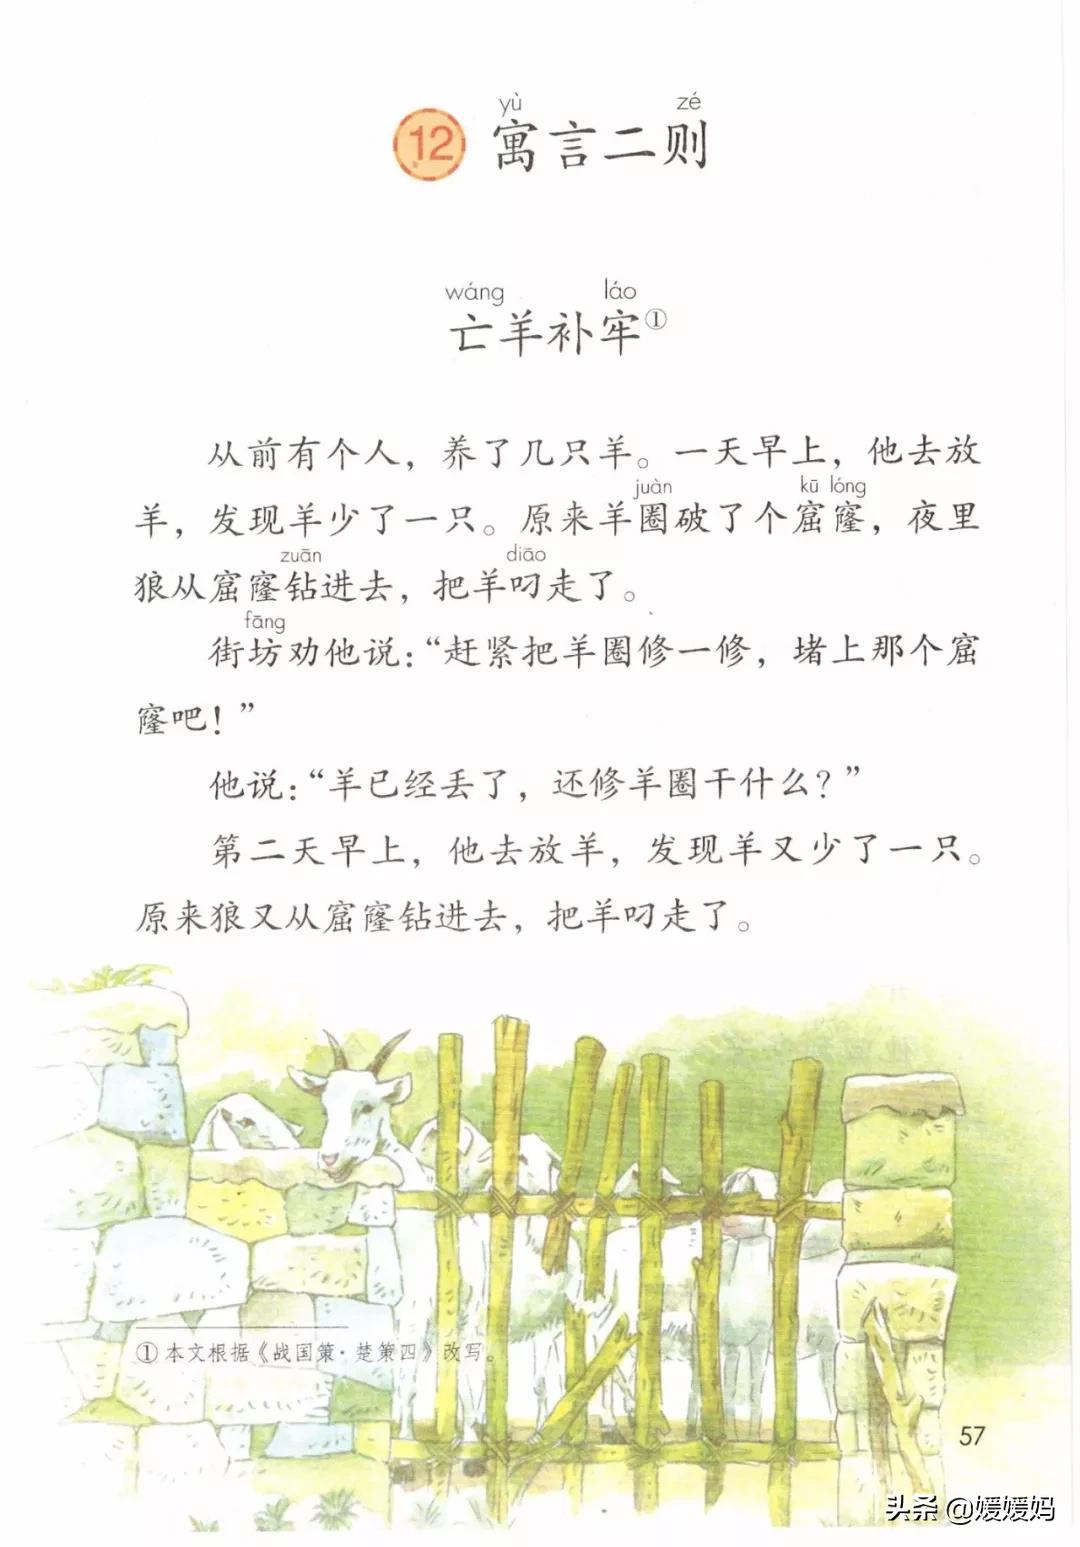 yù zé
12 寓言二则
wáng láo
亡羊补牢①
从前有个人，养了几只羊。一天早上，他去放
juàn kū lóng
羊，发现羊少了一只。原来羊圈破了个窟窿，夜里
zuān diāo
狼从窟窿钻进去，把羊叼走了。
fāng
街坊劝他说：“赶紧把羊圈修一修，堵上那个窟
窿吧！”
他说：“羊已经丢了，还修羊圈干什么？”
第二天早上，他去放羊，发现羊又少了一只。
原来狼又从窟窿钻进去，把羊叼走了。
①本文根据《战国策·楚策四》改写。
57
头条 @媛媛妈